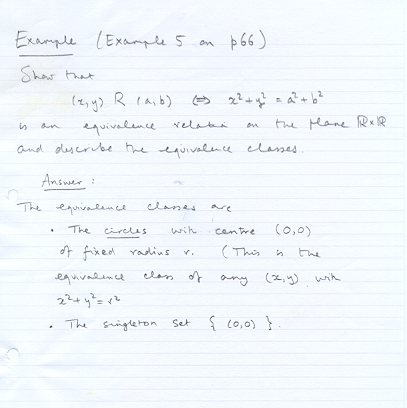 Example (Example 5 on p66)
Show that
(x,y) R (a,b) ⇔ x²+y² = a²+b²
is an equivalence relation on the plane ℝ×ℝ
and describe the equivalence classes.
Answer :
The equivalence classes are
• The circles with centre (0,0)
of fixed radius r. (This is the
equivalence class of any (x,y) with
x²+y²=r²
• The singleton set { (0,0) }.